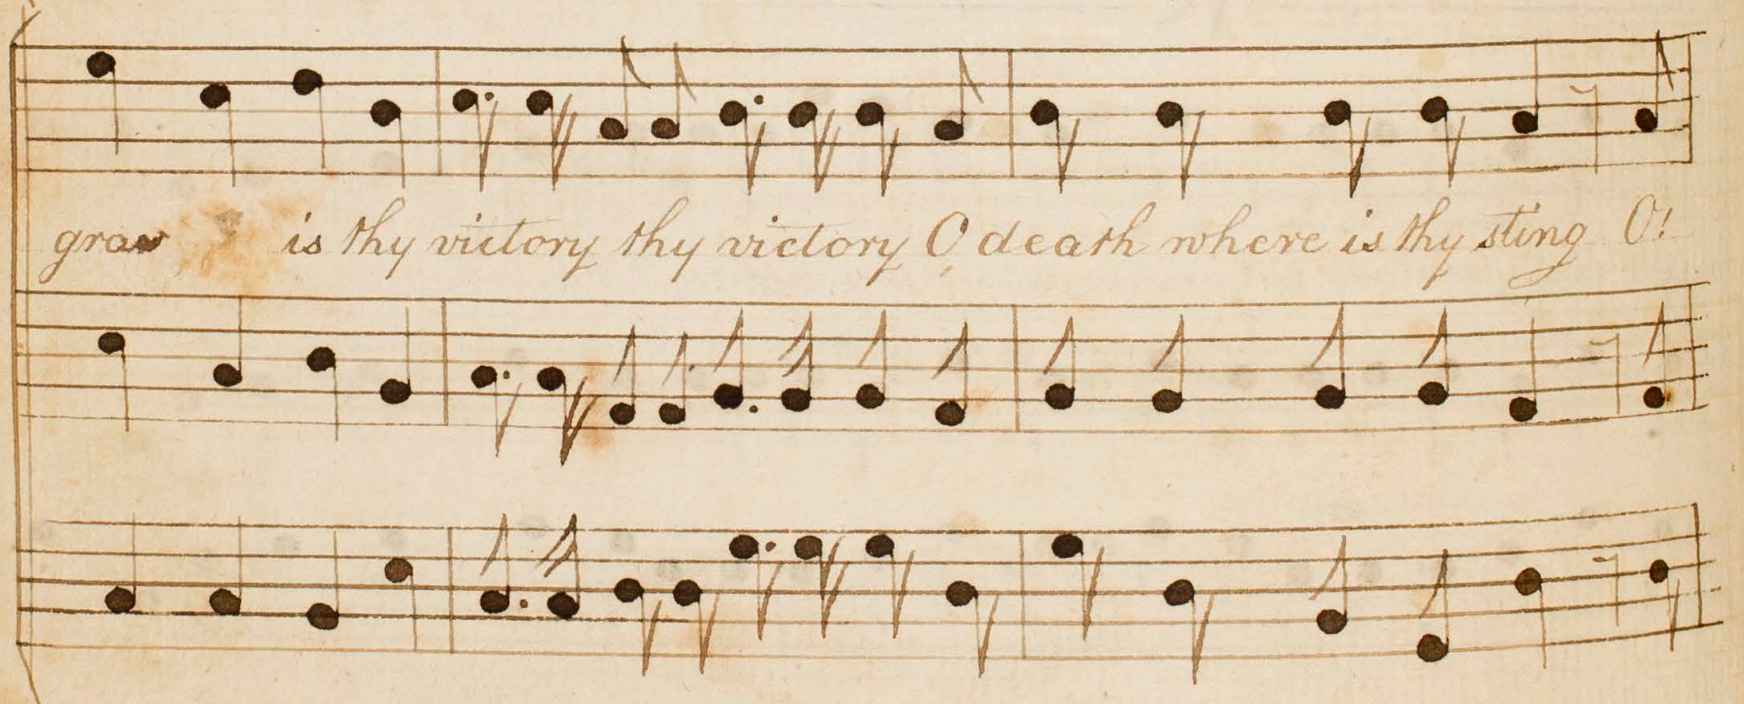 grav is thy victory thy victory O death where is thy sting O!